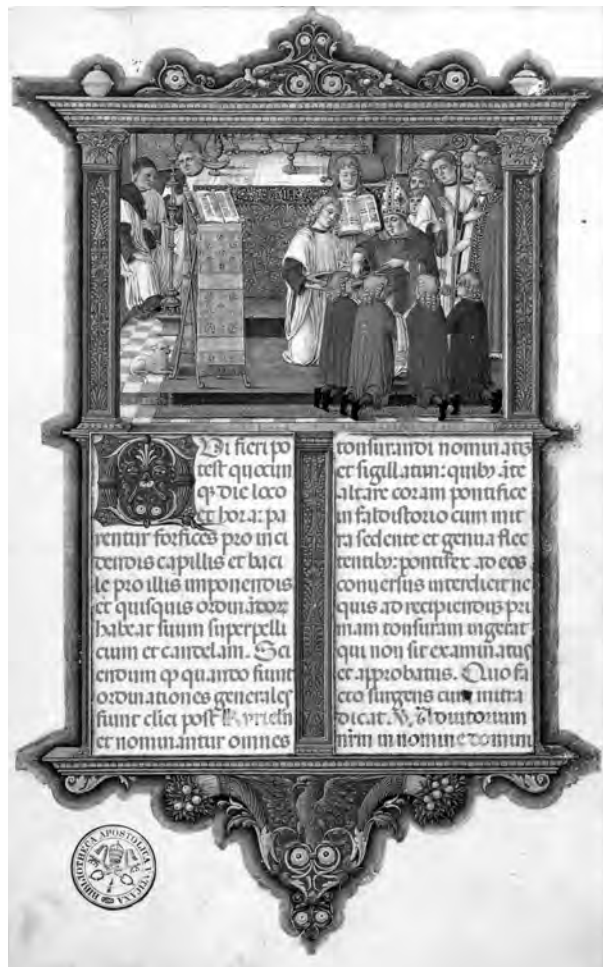 Ui fieri po
test quocun
q̄ die loco
et hora: pa
rentur forfices pro inci
dendis capillis et baci
le pro illis imponendis
et quisquis ordinādor̄
habeat suum superpelli
cium et candelam. Sci
endum q̄ quando fiunt
ordinationes generales
fiunt clici post Kyrieln
et nominantur omnes
tonsurandi nominatis
et sigillatim: quib9 āte
altare coram pontifice
in faldistorio cum mit
ra sedente et genua flec
tentib9: pontifex ad eos
conversus interdicit ne
quis ad recipiendum pri
mam tonsuram ingerat
qui non sit examinatus
et approbatus. Quo fa
cto surgens cum mitra
dicat. V. Adiutorium
nr̄m in nomine domini
BIBLIOTHECA APOSTOLICA VATICANA